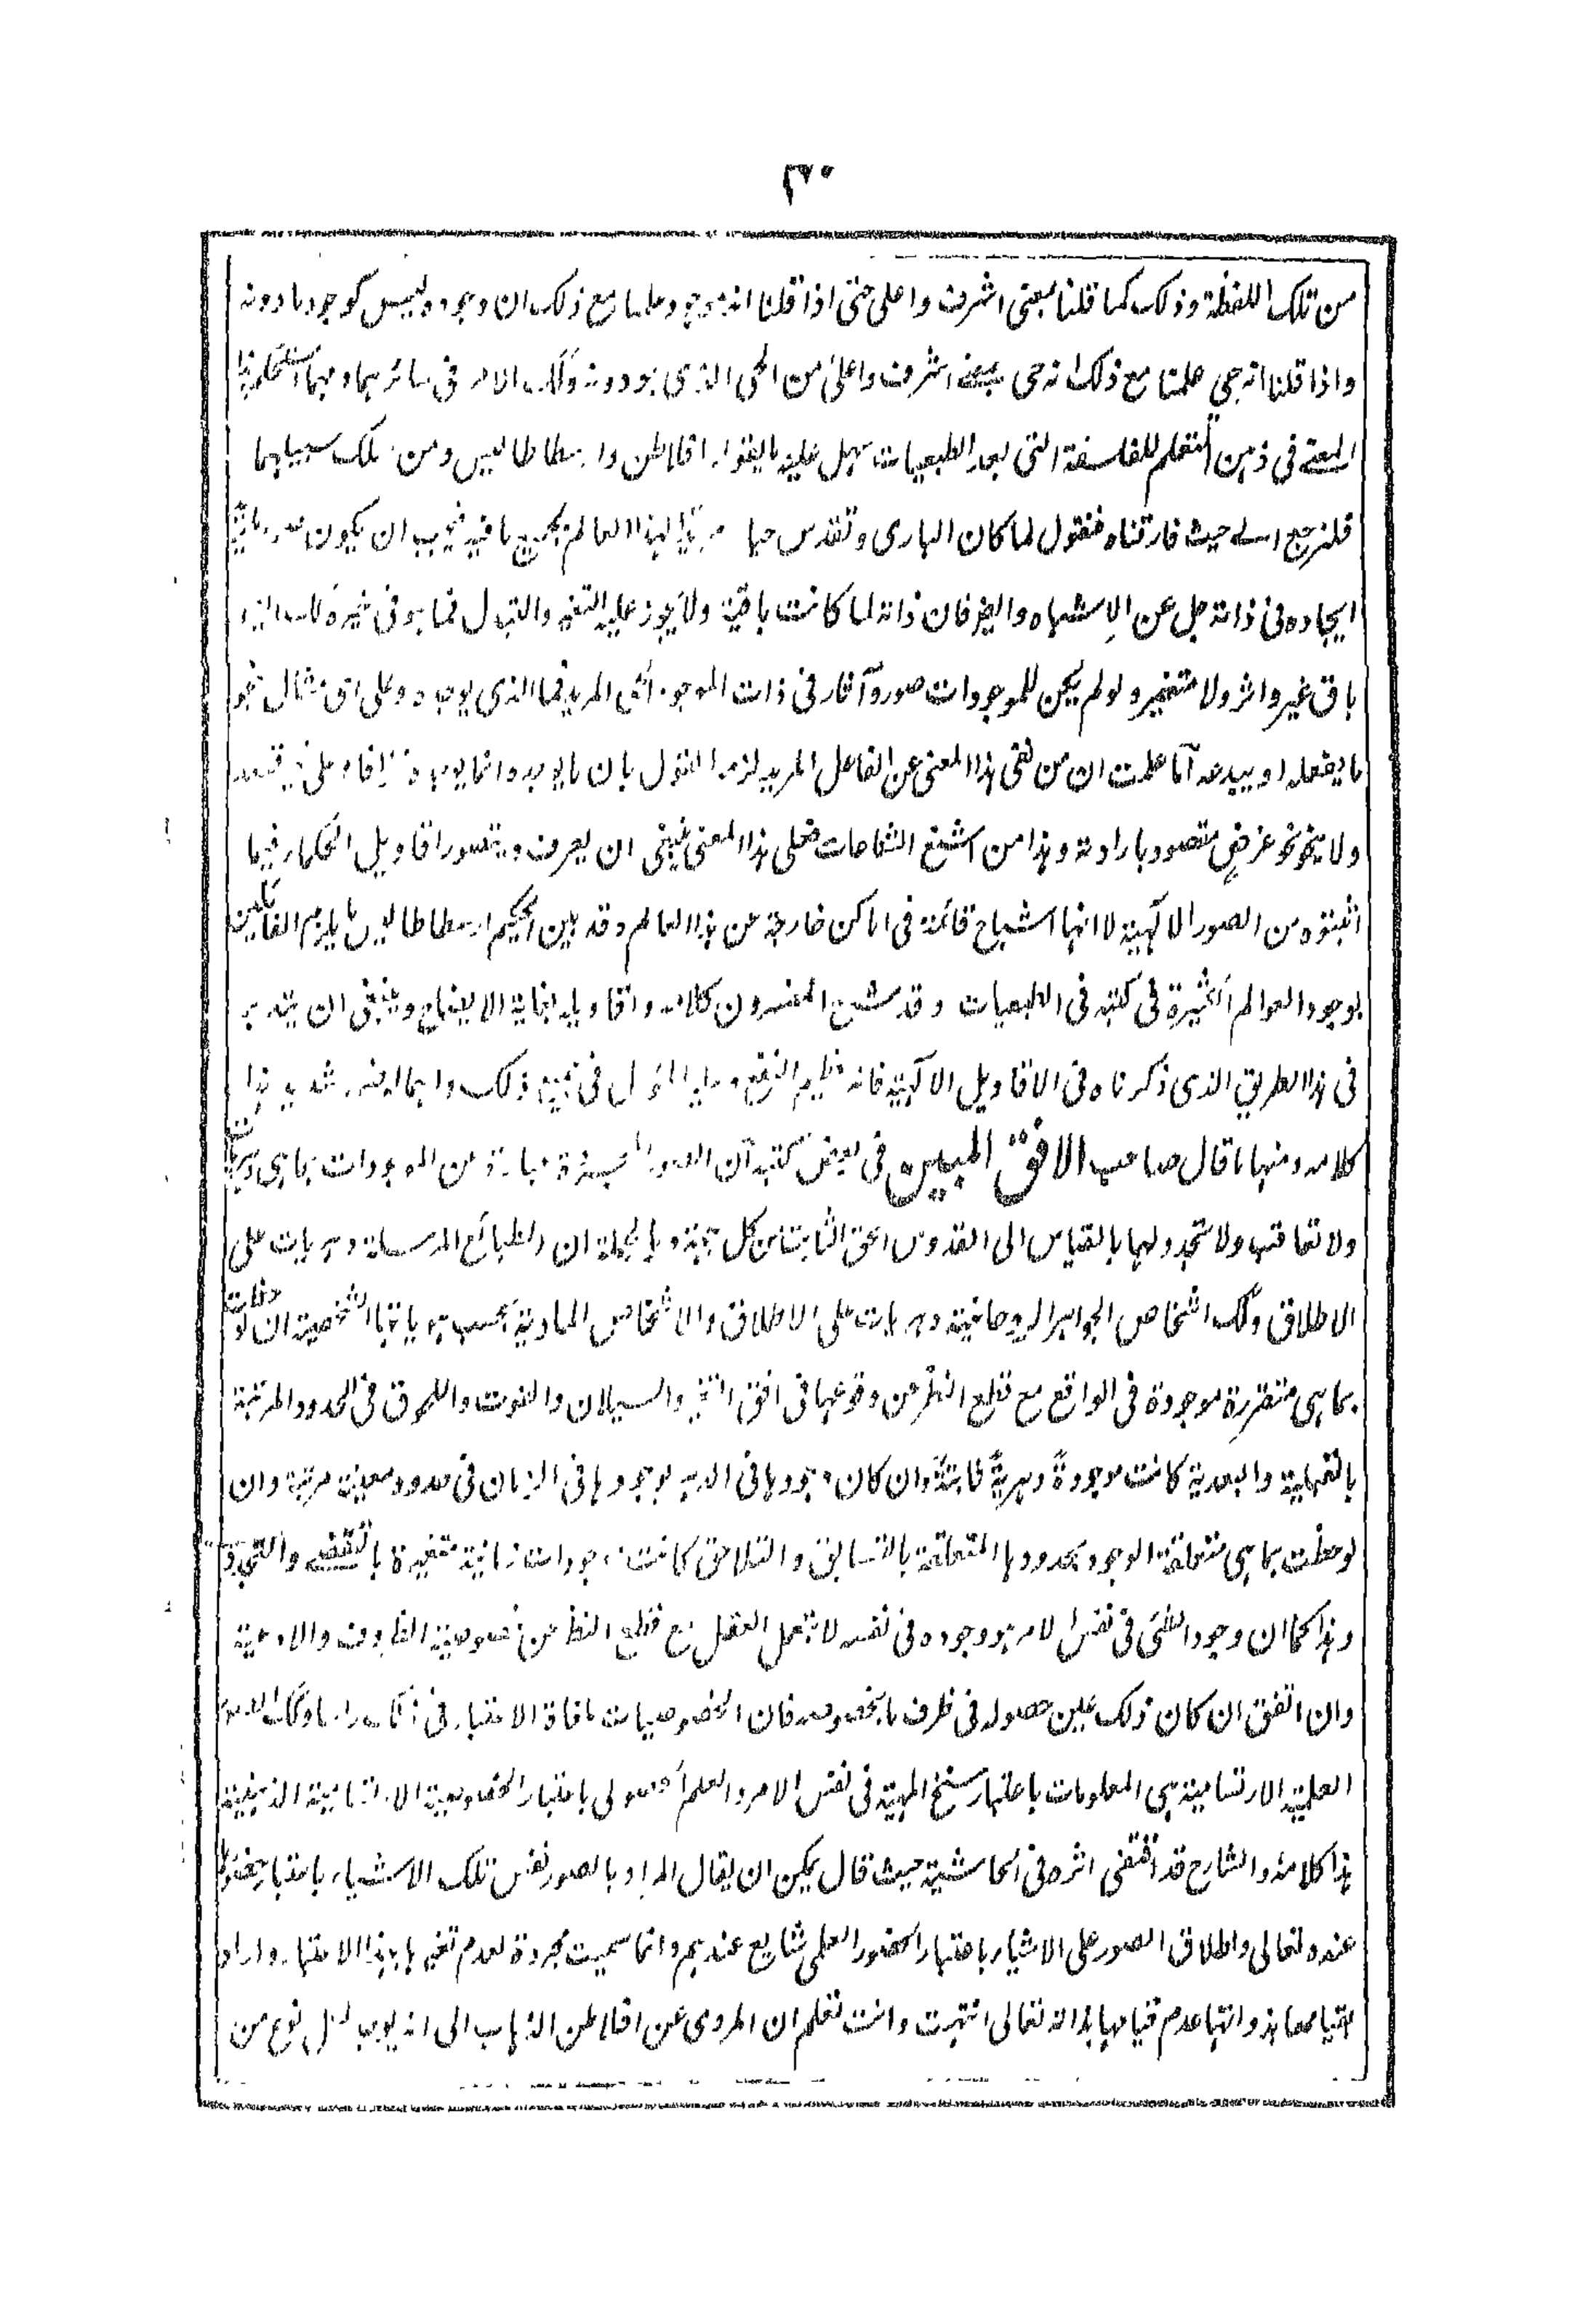 ٣٠
من تلك اللفظة وذلك كما قلنا بمعنى اشرف واعلى حتى اذا قلنا انه موجود علمنا مع ذلك ان وجوده ليس كوجود ما دونه
واذا قلنا انه حي علمنا مع ذلك انه حي بمعنى اشرف واعلى من الحي الذي هو دونه وكذلك الامر في سائرها ومهما استحكم هذا
المعنى في ذهن المتعلم للفلسفة التي بعد الطبعيات سهل عليه ما يقوله افلاطن وارسطاطاليس ومن سلك سبيلهما
فلنرجع الى حيث فارقناه فنقول لما كان الباري وتقدس حيا لهذا العالم بجميع ما فيه فيجب ان يكون
ايجاده في ذاته جل عن الاشتباه وايضا فان ذاته لما كانت باقية ولا يجوز عليه التغير والتبدل فما هو في غيره كذلك
باق غير داثر ولا متغير ولو لم يكن للموجودات صور وآثار في ذات الموجد الحي المريد فما الذي يوجده وعلى اي مثال نحو
ما يفعله او يبدعه أما علمت ان من نفى هذا المعنى عن الفاعل المريد لزمه القول بان ما يوجده انما يوجده جزافا وعلى غير قصد
ولا ينحو نحو غرض مقصود بارادته وهذا من اشنع الشناعات فعلى هذا المعنى ينبغي ان يعرف ويتصور اقاويل الحكماء فيما
اثبتوه من الصور الآلهية لا انها اشباح قائمة في اماكن خارجة عن هذا العالم وقد بين الحكيم ارسطاطاليس ما يلزم القائلين
بوجود العوالم الكثيرة في كتبه في الطبعيات وقد شرح المفسرون كلامه واقاويله بغاية الايضاح وينبغي ان يتدبر
في هذا الطريق الذي ذكرناه في الاقاويل الآلهية فانه عظيم النفع وعليه المعول في جميع ذلك واهماله ضرر شديد هذا
كلامه ومنها ما قال صاحب الافق المبين في بعض كتبه ان الصور المجردة عبارة عن الموجودات بما هي دهريات
ولا تعاقب ولا تجدد لها بالقياس الى القدوس الحق الثابت من كل جهة وبالجملة ان الطبائع المرسلة دهريات على
الاطلاق وكذلك اشخاص الجواهر الروحانية دهريات على الاطلاق والاشخاص المادية بحسب هوياتها الشخصية ان لوحظت
بما هي متقررة موجودة في الواقع مع قطع النظر عن وقوعها في افق التغير والسيلان والفوت واللحوق في الحدود المرتبة
بالقبلية والبعدية كانت موجودة دهرية ثابتة وان كان وجودها في الدهر بوجودها في الزمان في حدود معينة مرتبة وان
لوحظت بما هي متعلقة الوجود بحدودها المتعلقة بالتسابق والتلاحق كانت موجودات زمانية متغيرة بالتقضي والتجدد
وهذا كما ان وجود الشيء في نفس الامر هو وجوده في نفسه لا بتعمل العقل مع قطع النظر عن خصوصية الظروف والاوعية
وان اتفق ان كان ذلك عين حصوله في ظرف ما بخصوصه فان الخصوصيات ملغاة الاعتبار في ذلك راسا وكذلك الصور
العلمية الارتسامية هي المعلومات باعتبار سنخ المهية في نفس الامر والعلم الحصولي باعتبار الخصوصية الارتسامية الذهنية
هذا كلامه والشارح قد اقتفى اثره في الحاشية حيث قال يمكن ان يقال المراد بالصور نفس تلك الاشياء باعتبار حضورها
عنده تعالى واطلاق الصور على الاشياء باعتبار الحضور العلمي شايع عندهم وانما سميت مجردة لعدم تغيرها بهذا الاعتبار واراد
بقيامها بذواتها عدم قيامها بذاته تعالى انتهت وانت تعلم ان المروي عن افلاطن الذهاب الى انه يوجد لكل نوع من